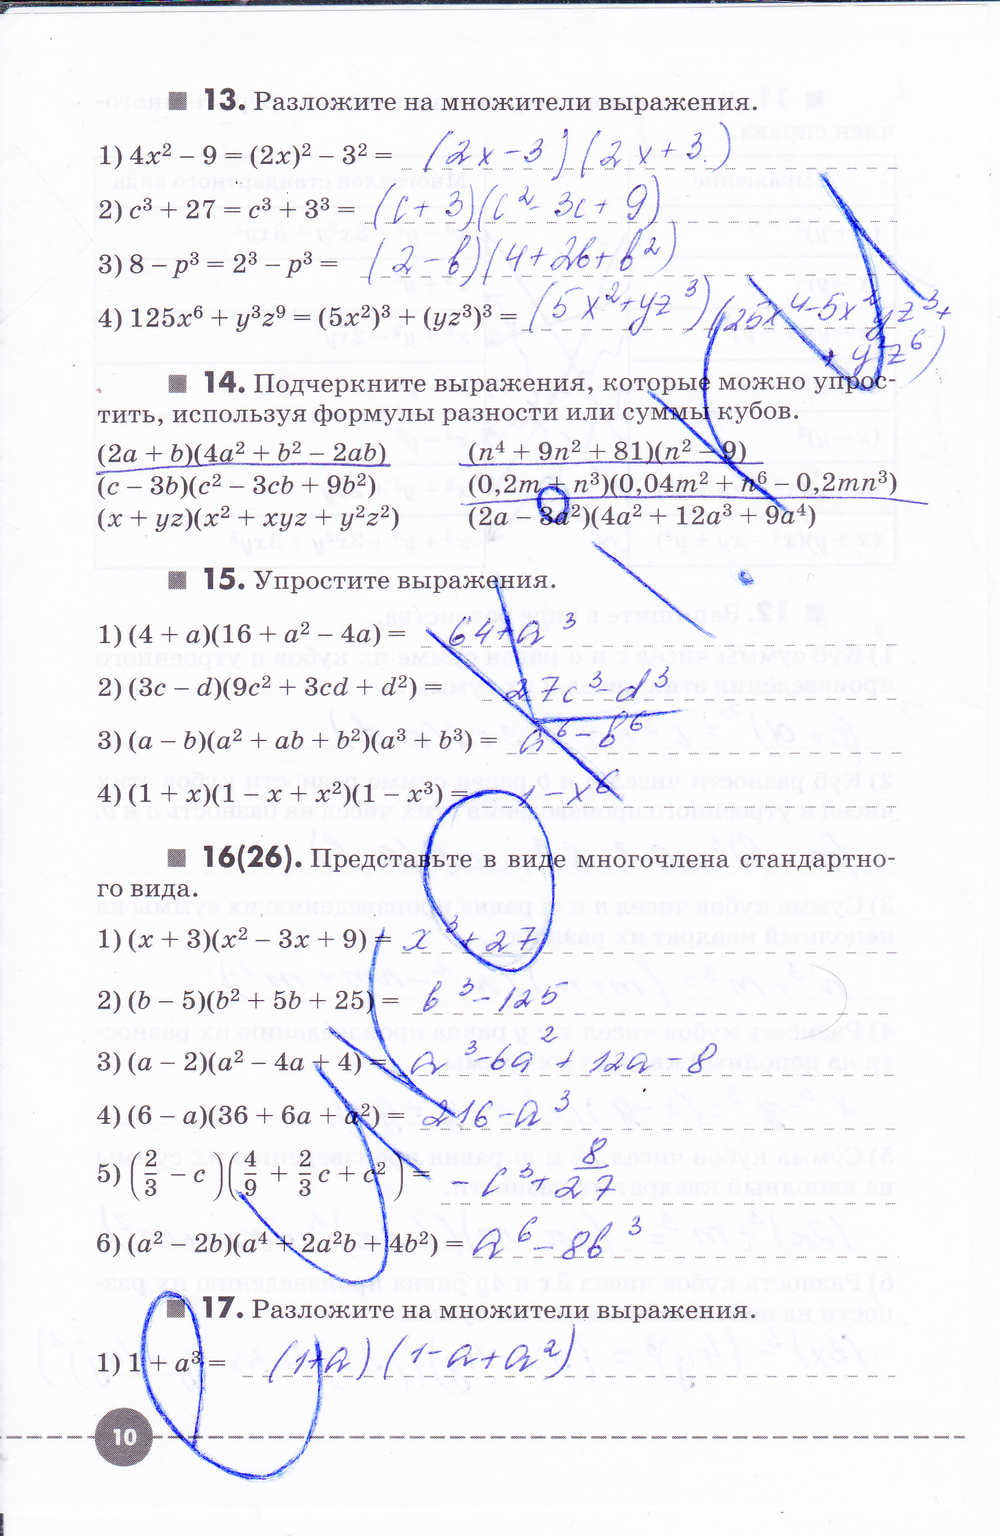 13. Разложите на множители выражения.
1) 4x² – 9 = (2x)² – 3² = (2x-3)(2x+3)
2) c³ + 27 = c³ + 3³ = (c+3)(c²-3c+9)
3) 8 – p³ = 2³ – p³ = (2-b)(4+2b+b²)
4) 125x⁶ + y³z⁹ = (5x²)³ + (yz³)³ = (5x²+yz³)(25x⁴-5x²yz³+
+y²z⁶)
14. Подчеркните выражения, которые можно упрос-
тить, используя формулы разности или суммы кубов.
(2a + b)(4a² + b² – 2ab) (n⁴ + 9n² + 81)(n² – 9)
(c – 3b)(c² – 3cb + 9b²) (0,2m + n³)(0,04m² + n⁶ – 0,2mn³)
(x + yz)(x² + xyz + y²z²) (2a – 3a²)(4a² + 12a³ + 9a⁴)
15. Упростите выражения.
1) (4 + a)(16 + a² – 4a) = 64+a³
2) (3c – d)(9c² + 3cd + d²) = 27c³-d³
3) (a – b)(a² + ab + b²)(a³ + b³) = a⁶-b⁶
4) (1 + x)(1 – x + x²)(1 – x³) = 1-x⁶
16(26). Представьте в виде многочлена стандартно-
го вида.
1) (x + 3)(x² – 3x + 9) = x³+27
2) (b – 5)(b² + 5b + 25) = b³-125
3) (a – 2)(a² – 4a + 4) = a³-6a²+12a-8
4) (6 – a)(36 + 6a + a²) = 216-a³
5) (2/3 – c)(4/9 + 2/3 c + c²) = -c³+8/27
6) (a² – 2b)(a⁴ + 2a²b + 4b²) = a⁶-8b³
17. Разложите на множители выражения.
1) 1 + a³ = (1+a)(1-a+a²)
10